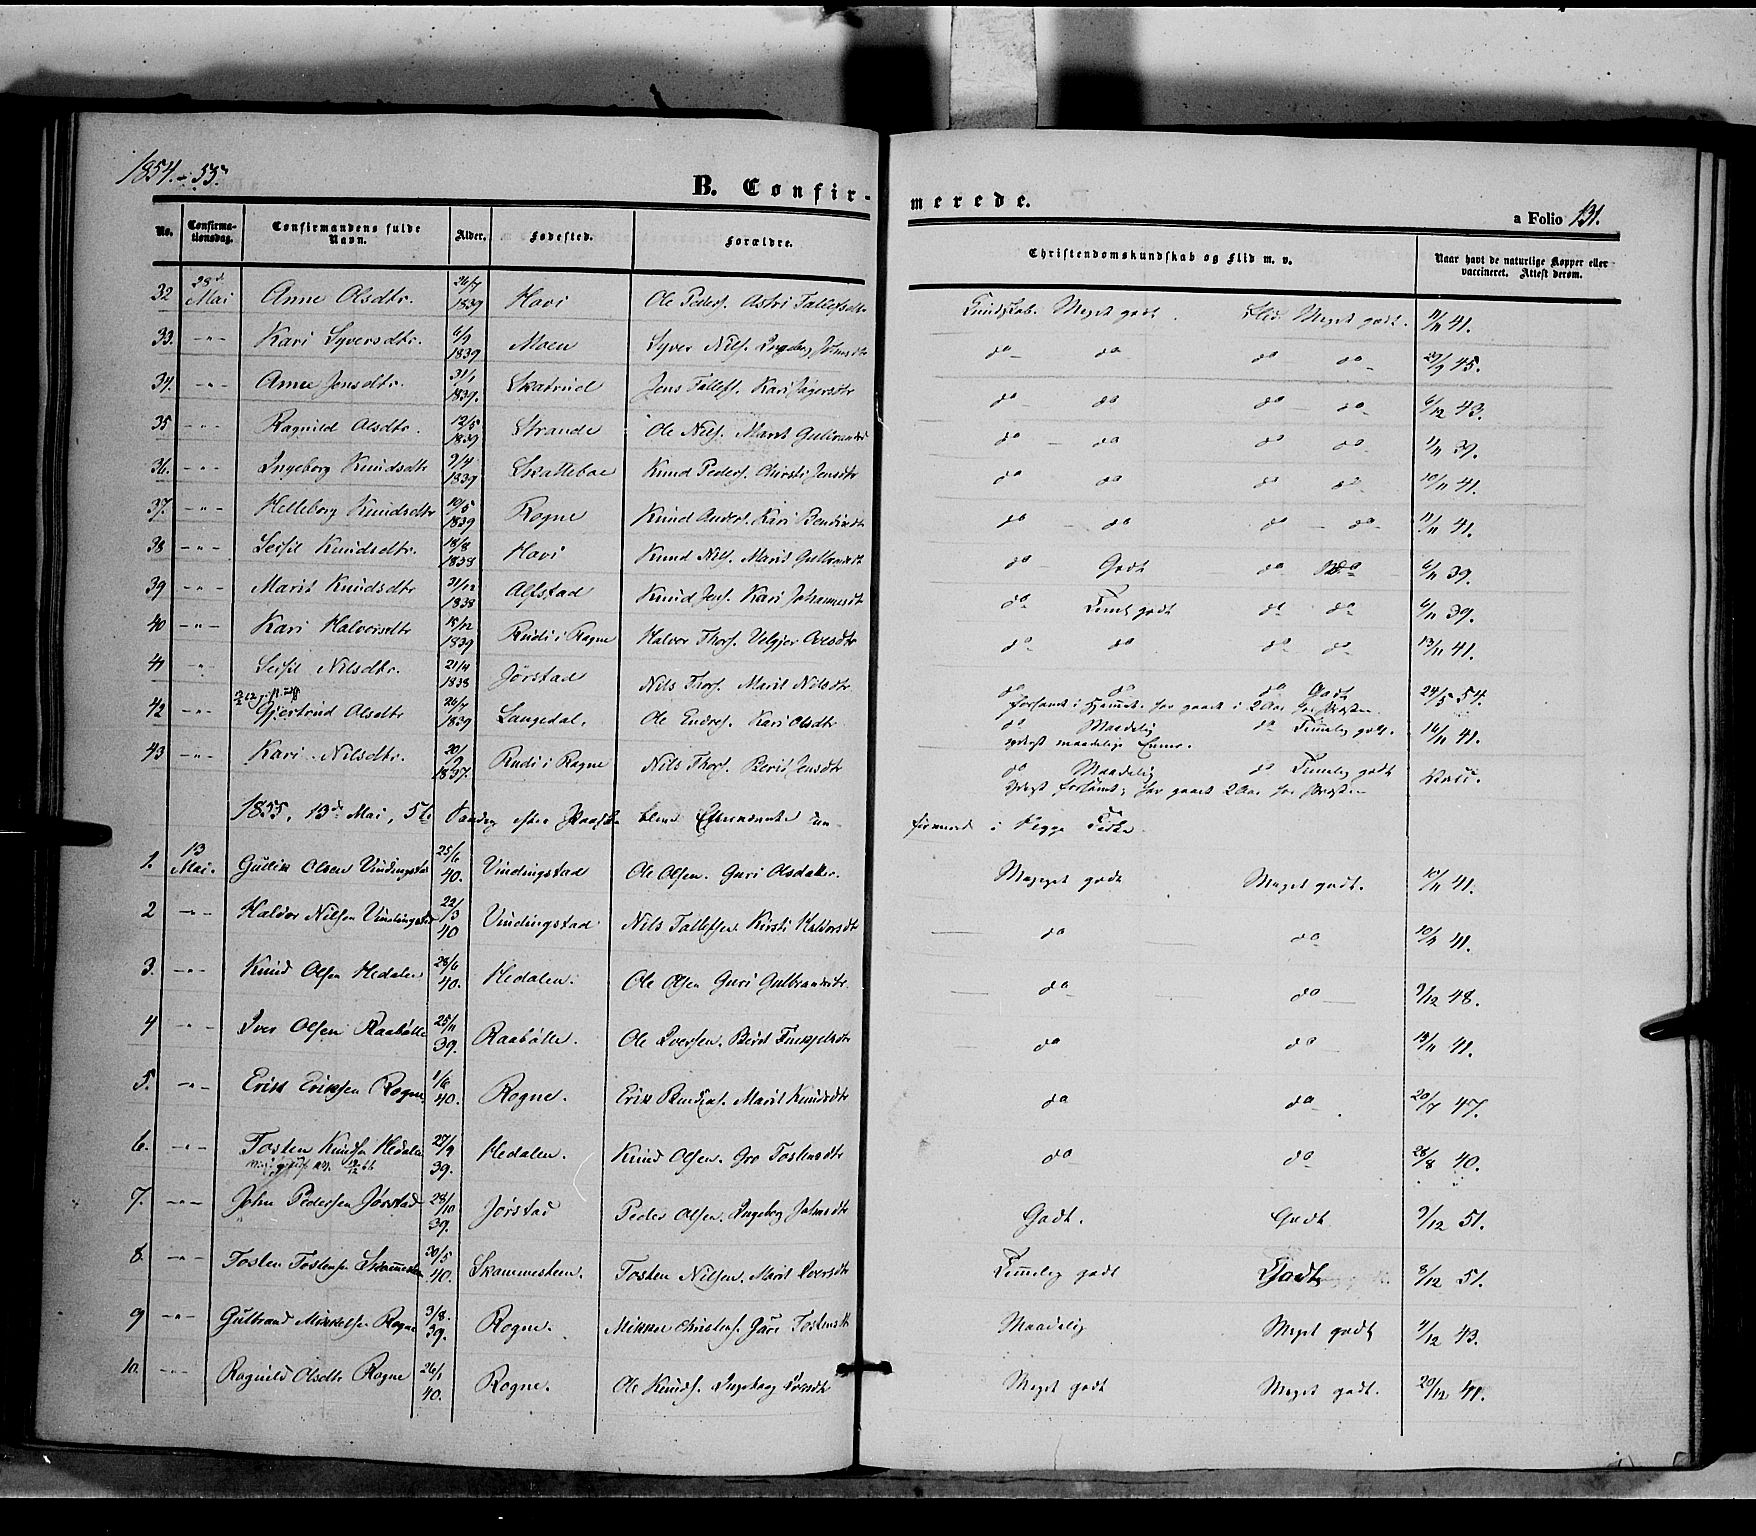 1854.-55.
B. Confir-
merede.
a Folio 131.
No. Confirma-tionsdag. Confirmandens fulde Navn. Alder. Fødested. Forældre. Christendomskundskab og Flid m. v. Naar havt de naturlige Kopper eller vaccineret. Attest derom.
32 28de Mai Anne Olsdtr. 26/7 1839 Havi Ole Peders. Astri Tallefsdtr Kundskab. Meget godt. Flid. Meget godt. 11/11 41.
33. -"- Kari Syversdtr. 6/7 1839 Moen Syver Nils. Ingeborg Johnsdtr do do do do 29/9 45.
34. -"- Anne Jensdtr. 31/1 1839. Skatrud Jens Tallefs. Kari do do do do 6/12 43.
35 -"- Ragnild Olsdtr. 12/5 1839 Strande Ole Nils. Marit Gulbrandsd do do do do 1/11 39.
36. -"- Ingeborg Knudsdtr 9/4 1839 Skatteboe Knud Peders. Christi Jensdtr do do do do 10/11 41.
37. -"- Helleborg Knudsdtr 10/5 1839 Rogne Knud Anders. Kari do do do do 11/11 41.
38 -"- Seissil Knudsdtr. 18/8 1838 Havi Knud Nils. Marit Gulbrandsdt do Godt do do 6/11 39.
39 -"- Marit Knudsdtr 31/12 1838 Alfstad Knud Jens. Kari Johannesdt do Teml. godt do do 6/11 39.
40 -"- Kari Halvorsdtr 15/12 1839 Rudi i Rogne Halvor Thors. do do do do 13/11 41.
41 " Seissil Nilsdtr. 21/4 1838 Jørstad Nils Thors. Marit Nilsdtr do do do Godt 24/5 54.
42 -"- Gjertrud Olsdtr 26/7 1839 Langedal. Ole Endres. Kari Olsdtr. do Maadelig do Temmelig godt. 16/11 41.
43 -"- Kari Nilsdtr. 20/9 1837. Rudi i Rogne Nils Thors. Berit Jensdtr do Maadelig do Temmelig godt
1855, 13de Mai, 5te Søndag efter Paaske bleve Efternævnte con-
firmerede i Hegge Kirke.
1. 13 Mai. Gullik Olsen Vindingstad 25/6 40. Vindingstad Ole Olsen. Guri Olsdatter. Meget godt Meget godt. 10/11 41.
2 -"- Haldor Nilsen Vindingstad 22/3 40 Vindingstad Nils Tallefsen Kirsti Haldorsdt do do 10/11 41.
3. -"- Knud Olsen Hedalen 28/6 40. Hedalen. Ole Olsen Guri Gulbrandsdtr. do do 7/12 48.
4 -"- Iver Olsen Raabølle 25/11 39. Raabølle. Ole Iversen. Berit do do 13/11 41.
5. -"- Erik Eriksen Rogne 1/6 40. Rogne. Erik Bendiks. Marit Knudsdtr do do. 20/7 47.
6. -"- Tosten Knudsen Hedalen 27/9 39. Hedalen. Knud Olsen. Gro Tostensdtr do do 28/8 40.
7. -"- John Pedersen Jørstad 28/10 39. Jørstad Peder Olsen. Ingeborg Johnsdtr Godt. Godt 9/12 51.
8. -"- Tosten Tostensen Skammesteen 30/5 40. Skammesteen. Tosten Nilsen. Marit Iversdtr Temmelig godt Godt 8/12 51.
9 -"- Gulbrand Mikkelsen Rogne 3/8. 39. Rogne. Mikkel Christens. Guri Tostensdt Maadelig Meget godt 4/12 43.
10. -"- Ragnild Olsdtr Rogne 26/1 40. Rogne. Ole Knuds. Ingeborg Iversdt Meget godt Meget godt. 20/12 41.